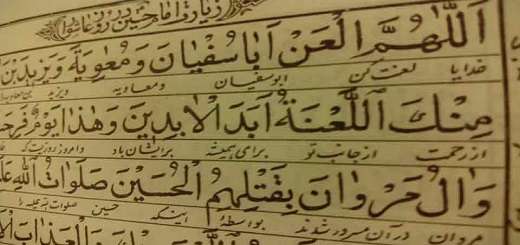 زیارت امام حسین در روز عاشورا
اَللّٰهُمَّ الْعَنْ اَباسُفْیانَ وَ مُعٰوِیَةَ وَ یَزیدَ بْنَ
خدایا لعنت کن ابوسفیان و معاویه و یزید
مِنْكَ اللَّعْنَةُ اَبَدَ الْاٰبِدینَ وَ هٰذا یَوْمٌ فَرِحَ
از رحمت از جانب تو برای همیشه برایشان باد و امروز روزیست که
وَ اٰلُ مَرْوانَ بِقَتْلِهِمُ الْحُسَیْنَ صَلَواتُ اللّٰهِ عَلَ
مروان در آن مسرور شدند بواسطه اینکه حسین صلوات الله علیه را
وَ الْعَذابَ الْا